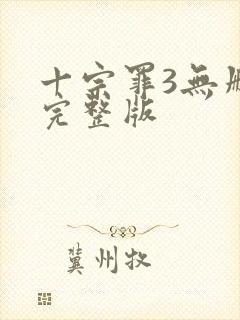 十宗罪3無
完整版
冀州牧